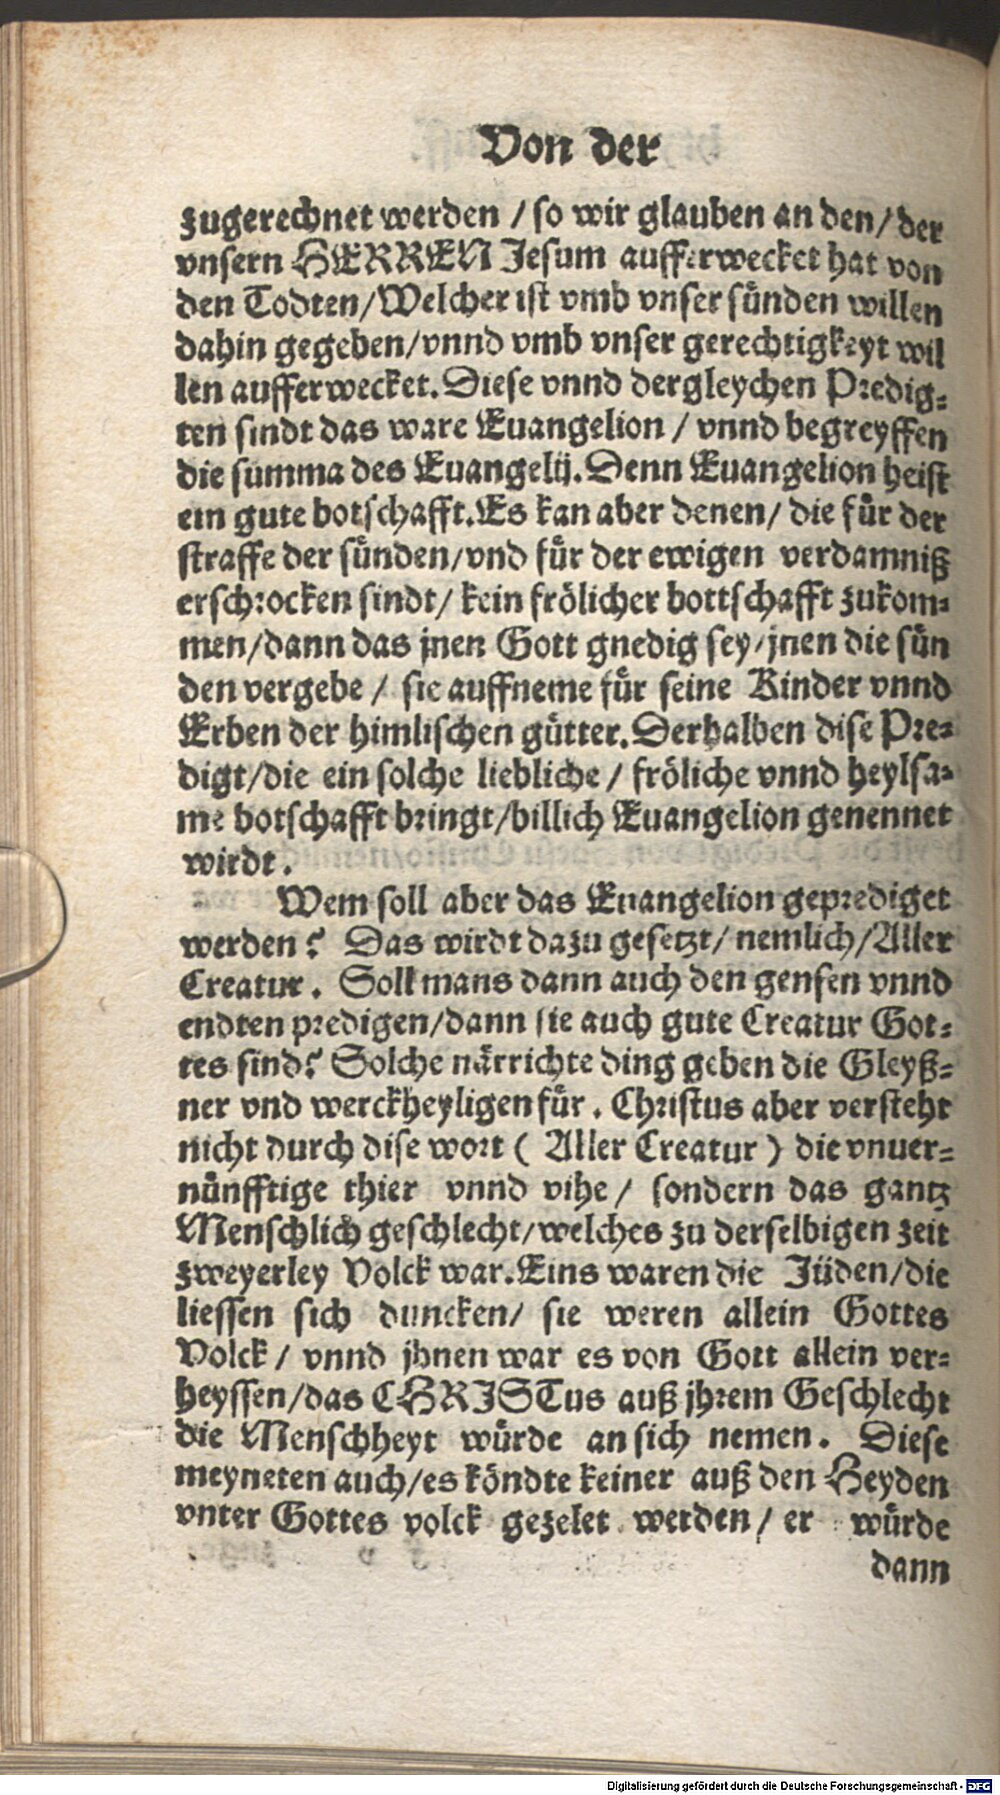 Von der
zugerechnet werden / so wir glauben an den / der
vnsern HERREN Jesum aufferwecket hat von
den Todten / Welcher ist vmb vnser sünden willen
dahin gegeben / vnnd vmb vnser gerechtigkeyt wil
len aufferwecket. Diese vnnd dergleychen Predig⸗
ten sindt das ware Euangelion / vnnd begreyffen
die summa des Euangelij. Denn Euangelion heist
ein gute botschafft. Es kan aber denen / die für der
straffe der sünden / vnd für der ewigen verdamniß
erschrocken sindt / kein frölicher bottschafft zukom⸗
men / dann das jnen Gott gnedig sey / jnen die sün
den vergebe / sie auffneme für seine Kinder vnnd
Erben der himlischen gütter. Derhalben dise Pre⸗
digt / die ein solche liebliche / fröliche vnnd heylsa⸗
me botschafft bringt / billich Euangelion genennet
wirdt.
Wem soll aber das Euangelion geprediget
werden? Das wirdt dazu gesetzt / nemlich / Aller
Creatur. Soll mans dann auch den gensen vnnd
endten predigen / dann sie auch gute Creatur Got⸗
tes sind? Solche närrichte ding geben die Gleyß⸗
ner vnd werckheyligen für. Christus aber versteht
nicht durch dise wort ( Aller Creatur ) die vnuer⸗
nünfftige thier vnnd vihe / sondern das gantz
Menschlich geschlecht / welches zu derselbigen zeit
zweyerley Volck war. Eins waren die Jüden / die
liessen sich duncken / sie weren allein Gottes
Volck / vnnd jhnen war es von Gott allein ver⸗
heyssen / das CHRISTus auß jhrem Geschlecht
die Menschheyt würde an sich nemen. Diese
meyneten auch / es köndte keiner auß den Heyden
vnter Gottes volck gezelet werden / er würde
dann
Digitalisierung gefördert durch die Deutsche Forschungsgemeinschaft - DFG